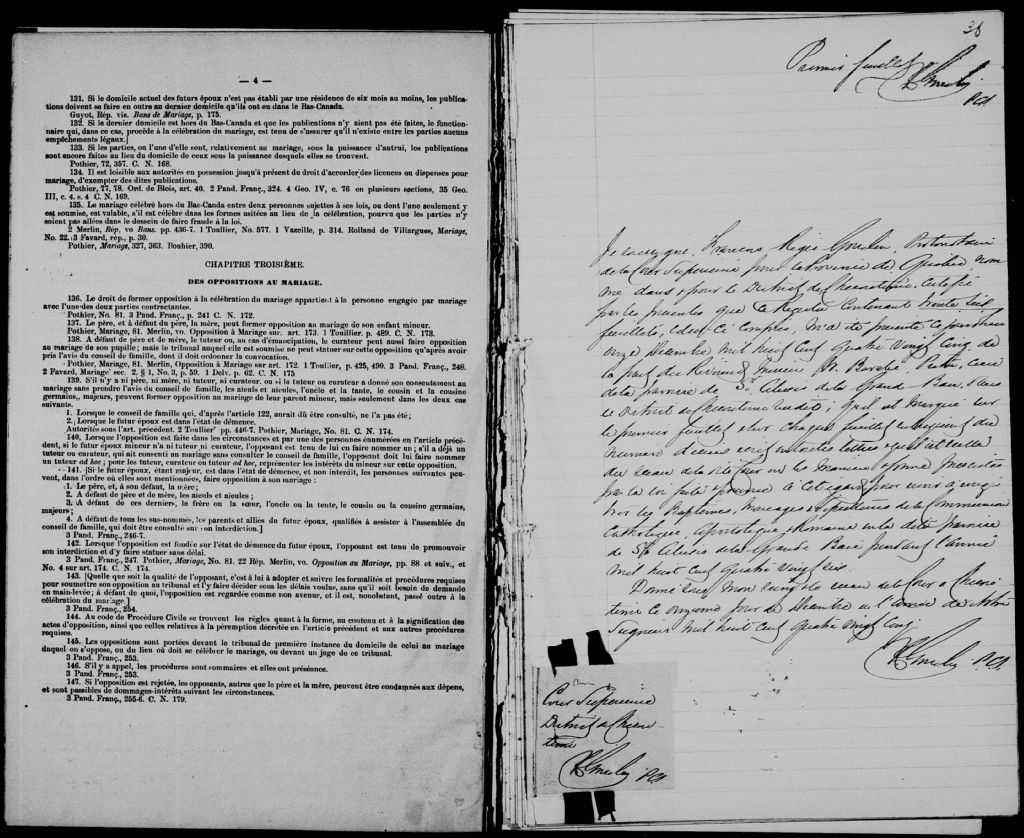 — 4 —
131. Si le domicile actuel des futurs époux n'est pas établi par une résidence de six mois au moins, les publica-
tions doivent se faire en outre au dernier domicile qu'ils ont eu dans le Bas-Canada.
Guyot, Rép. vis. Bans de Mariage, p. 175.
132. Si le dernier domicile est hors du Bas-Canada et que les publications n'y aient pas été faites, le fonction-
naire qui, dans ce cas, procède à la célébration du mariage, est tenu de s'assurer qu'il n'existe entre les parties aucuns
empêchements légaux.]
133. Si les parties, ou l'une d'elle sont, relativement au mariage, sous la puissance d'autrui, les publications
sont encore faites au lieu du domicile de ceux sous la puissance desquels elles se trouvent.
Pothier, 72, 357. C. N. 168.
134. Il est loisible aux autorités en possession jusqu'à présent du droit d'accorder des licences ou dispenses pour
mariage, d'exempter des dites publications.
Pothier, 77, 78. Ord. de Blois, art. 40. 2 Pand. Franç., 324. 4 Geo. IV, c. 76 en plusieurs sections, 35 Geo.
III, c. 4. s. 4 C. N. 169.
135. Le mariage célébré hors du Bas-Canda entre deux personnes sujettes à ses lois, ou dont l'une seulement y
est soumise, est valable, s'il est célébré dans les formes usitées au lieu de la célébration, pourvu que les parties n'y
soient pas allées dans le dessein de faire fraude à la loi.
2 Merlin, Rép, vo Bans. pp. 436-7. 1 Toullier, No. 577. 1 Vazeille, p. 314. Rolland de Villargues, Mariage,
No. 22. 3 Favard, rép., p. 30.
Pothier, Mariage, 327, 363. Bouhier, 390.
CHAPITRE TROISIÈME.
DES OPPOSITIONS AU MARIAGE.
136. Le droit de former opposition à la célébration du mariage appartient à la personne engagée par mariage
avec l'une des deux parties contractantes.
Pothier, No. 81. 3 Pand. Franç., p. 241 C. N. 172.
137. Le père, et à défaut du père, la mère, peut former opposition au mariage de son enfant mineur.
Pothier, Mariage, 81. Merlin, vo. Opposition à Mariage sur. art. 173. 1 Touillier. p. 489. C. N. 173.
138. A défaut de père et de mère, le tuteur ou, au cas d'émancipation, le curateur peut aussi faire opposition
au mariage de son pupille; mais le tribunal auquel elle est soumise ne peut statuer sur cette opposition qu'après avoir
pris l'avis du conseil de famille, dont il doit ordonner la convocation.
Pothier, Mariage, 81. Merlin, Opposition à Mariage sur art. 172. 1 Toullier, p. 425, 490. 3 Pand. Franç., 248.
2 Favard, Mariage' sec. 2, § 1, No. 3, p. 59. 1 Delv. p. 62. C. N. 175
139. S'il n'y a ni père, ni mère, ni tuteur, ni curateur, ou si le tuteur ou curateur a donné son consentement au
mariage sans prendre l'avis du conseil de famille, les aïeuls et aïeules, l'oncle et la tante, le cousin et la cousine
germains, majeurs, peuvent former opposition au mariage de leur parent mineur, mais seulement dans les deux cas
suivants.
1. Lorsque le conseil de famille qui, d'après l'article 122, aurait dû être consulté, ne l'a pas été;
2. Lorsque le futur époux est dans l'état de démence.
Autorités sous l'art. précédent. 2 Toullier' pp. 446-7. Pothier, Mariage, No. 81. C. N. 174.
140. Lorsque l'opposition est faite dans les circonstances et par une des personnes énumérées en l'article précé-
dent, si le futur époux mineur n'a ni tuteur ni curateur, l'opposant est tenu de lui en faire nommer un; s'il a déjà un
tuteur ou curateur, qui ait consenti au mariage sans consulter le conseil de famille, l'opposant doit lui faire nommer
un tuteur ad hoc; pour les tuteur, curateur ou tuteur ad hoc, représenter les intérêts du mineur sur cette opposition.
141. [Si le futur époux, étant majeur, est dans l'état de démence, et non interdit, les personnes suivantes peu-
vent, dans l'ordre où elles sont mentionnées, faire opposition à son mariage:
1. Le père, et, à son défaut, la mère;
2. A défaut de père et de mère, les aïeuls et aïeules;
3. A défaut de ces derniers, le frère ou la sœur, l'oncle ou la tente, le cousin ou la cousine germains,
majeurs;
4. A défaut de tous les sus-nommés, les parents et alliés du futur époux, qualifiés à assister à l'assemblée du
conseil de famille, qui doit être consulté sur son interdiction.]
3 Pand. Franç., 246-7.
142. Lorsque l'opposition est fondée sur l'état de démence du futur époux, l'opposant est tenu de promouvoir
son interdiction et d'y faire statuer sans délai.
3 Pand. Franç., 247. Pothier, Mariage, No. 81. 22 Rép. Merlin, vo. Opposition au Mariage, pp. 88 et suiv., et
No. 4 sur art. 174. C. N. 174.
143. [Quelle que soit la qualité de l'opposant, c'est à lui à adopter et suivre les formalités et procédures requises
pour soumettre son opposition au tribunal et l'y faire décider sous les délais voulus, sans qu'il soit besoin de demande
en main-levée; à défaut de quoi, l'opposition est regardée comme non avenue, et il est, nonobstant, passé outre à la
célébration du mariage.]
3 Pand. Franç., 254.
144. Au code de Procédure Civile se trouvent les règles quant à la forme, au contenu et à la signification des
actes d'opposition, ainsi que celles relatives à la péremption décrétée en l'article précédent et aux autres procédures
requises.
145. Les oppositions sont portées devant le tribunal de première instance du domicile de celui au mariage
duquel on s'oppose, ou du lieu où doit se célébrer le mariage, ou devant un juge de ce tribunal.
3 Pand. Franç., 253.
146. S'il y a appel, les procédures sont sommaires et elles ont préséance.
3 Pand. Franç., 253.
147. Si l'opposition est rejetée, les opposants, autres que le père et la mère, peuvent être condamnés aux dépens,
et sont passibles de dommages-intérêts suivant les circonstances.
3 Pand. Franç., 255-6. C. N. 179.
Premier feuillet
PCS
Je soussigné Francois Régis Gosselin, Protonotaire
de la Cour Supérieure pour la Province de Québec nom
mé dans & pour le District de Chicoutimi, certifie
par les présentes que ce Régistre contenant trente six
feuillets, celui ci compris, m'a été présenté ce jourd'hui
onze Décembre mil huit cent quatre vingt cinq de
la part du Révérend messire Prêtre, curé
de la paroisse de St Alexis de la Grande Baie, dans
le District de Chicoutimi susdit; qu'il est marqué sur
le premier feuillet & sur chaque feuillet subséquent du
numéro d'icelui écrit en toutes lettres & qu'il est scellé
du sceau de la dite Cour en la manière & forme prescrites
par la loi faite & pourvue à cet égard pour servir à enrégis
trer les Baptêmes, Mariages & Sépultures de la Communion
Catholique, Apostolique & Romaine en la dite paroisse
de St Alexis de la Grande Baie pendant l'année
mil huit cent quatre vingt six.
Donné sous mon seing & le sceau de la Cour à Chicou
timi ce onzième jour de Décembre en l'année de Notre
Seigneur mil huit cent quatre vingt cinq
PCS
Cour Supérieure
District de Chicou-
timi
PCS